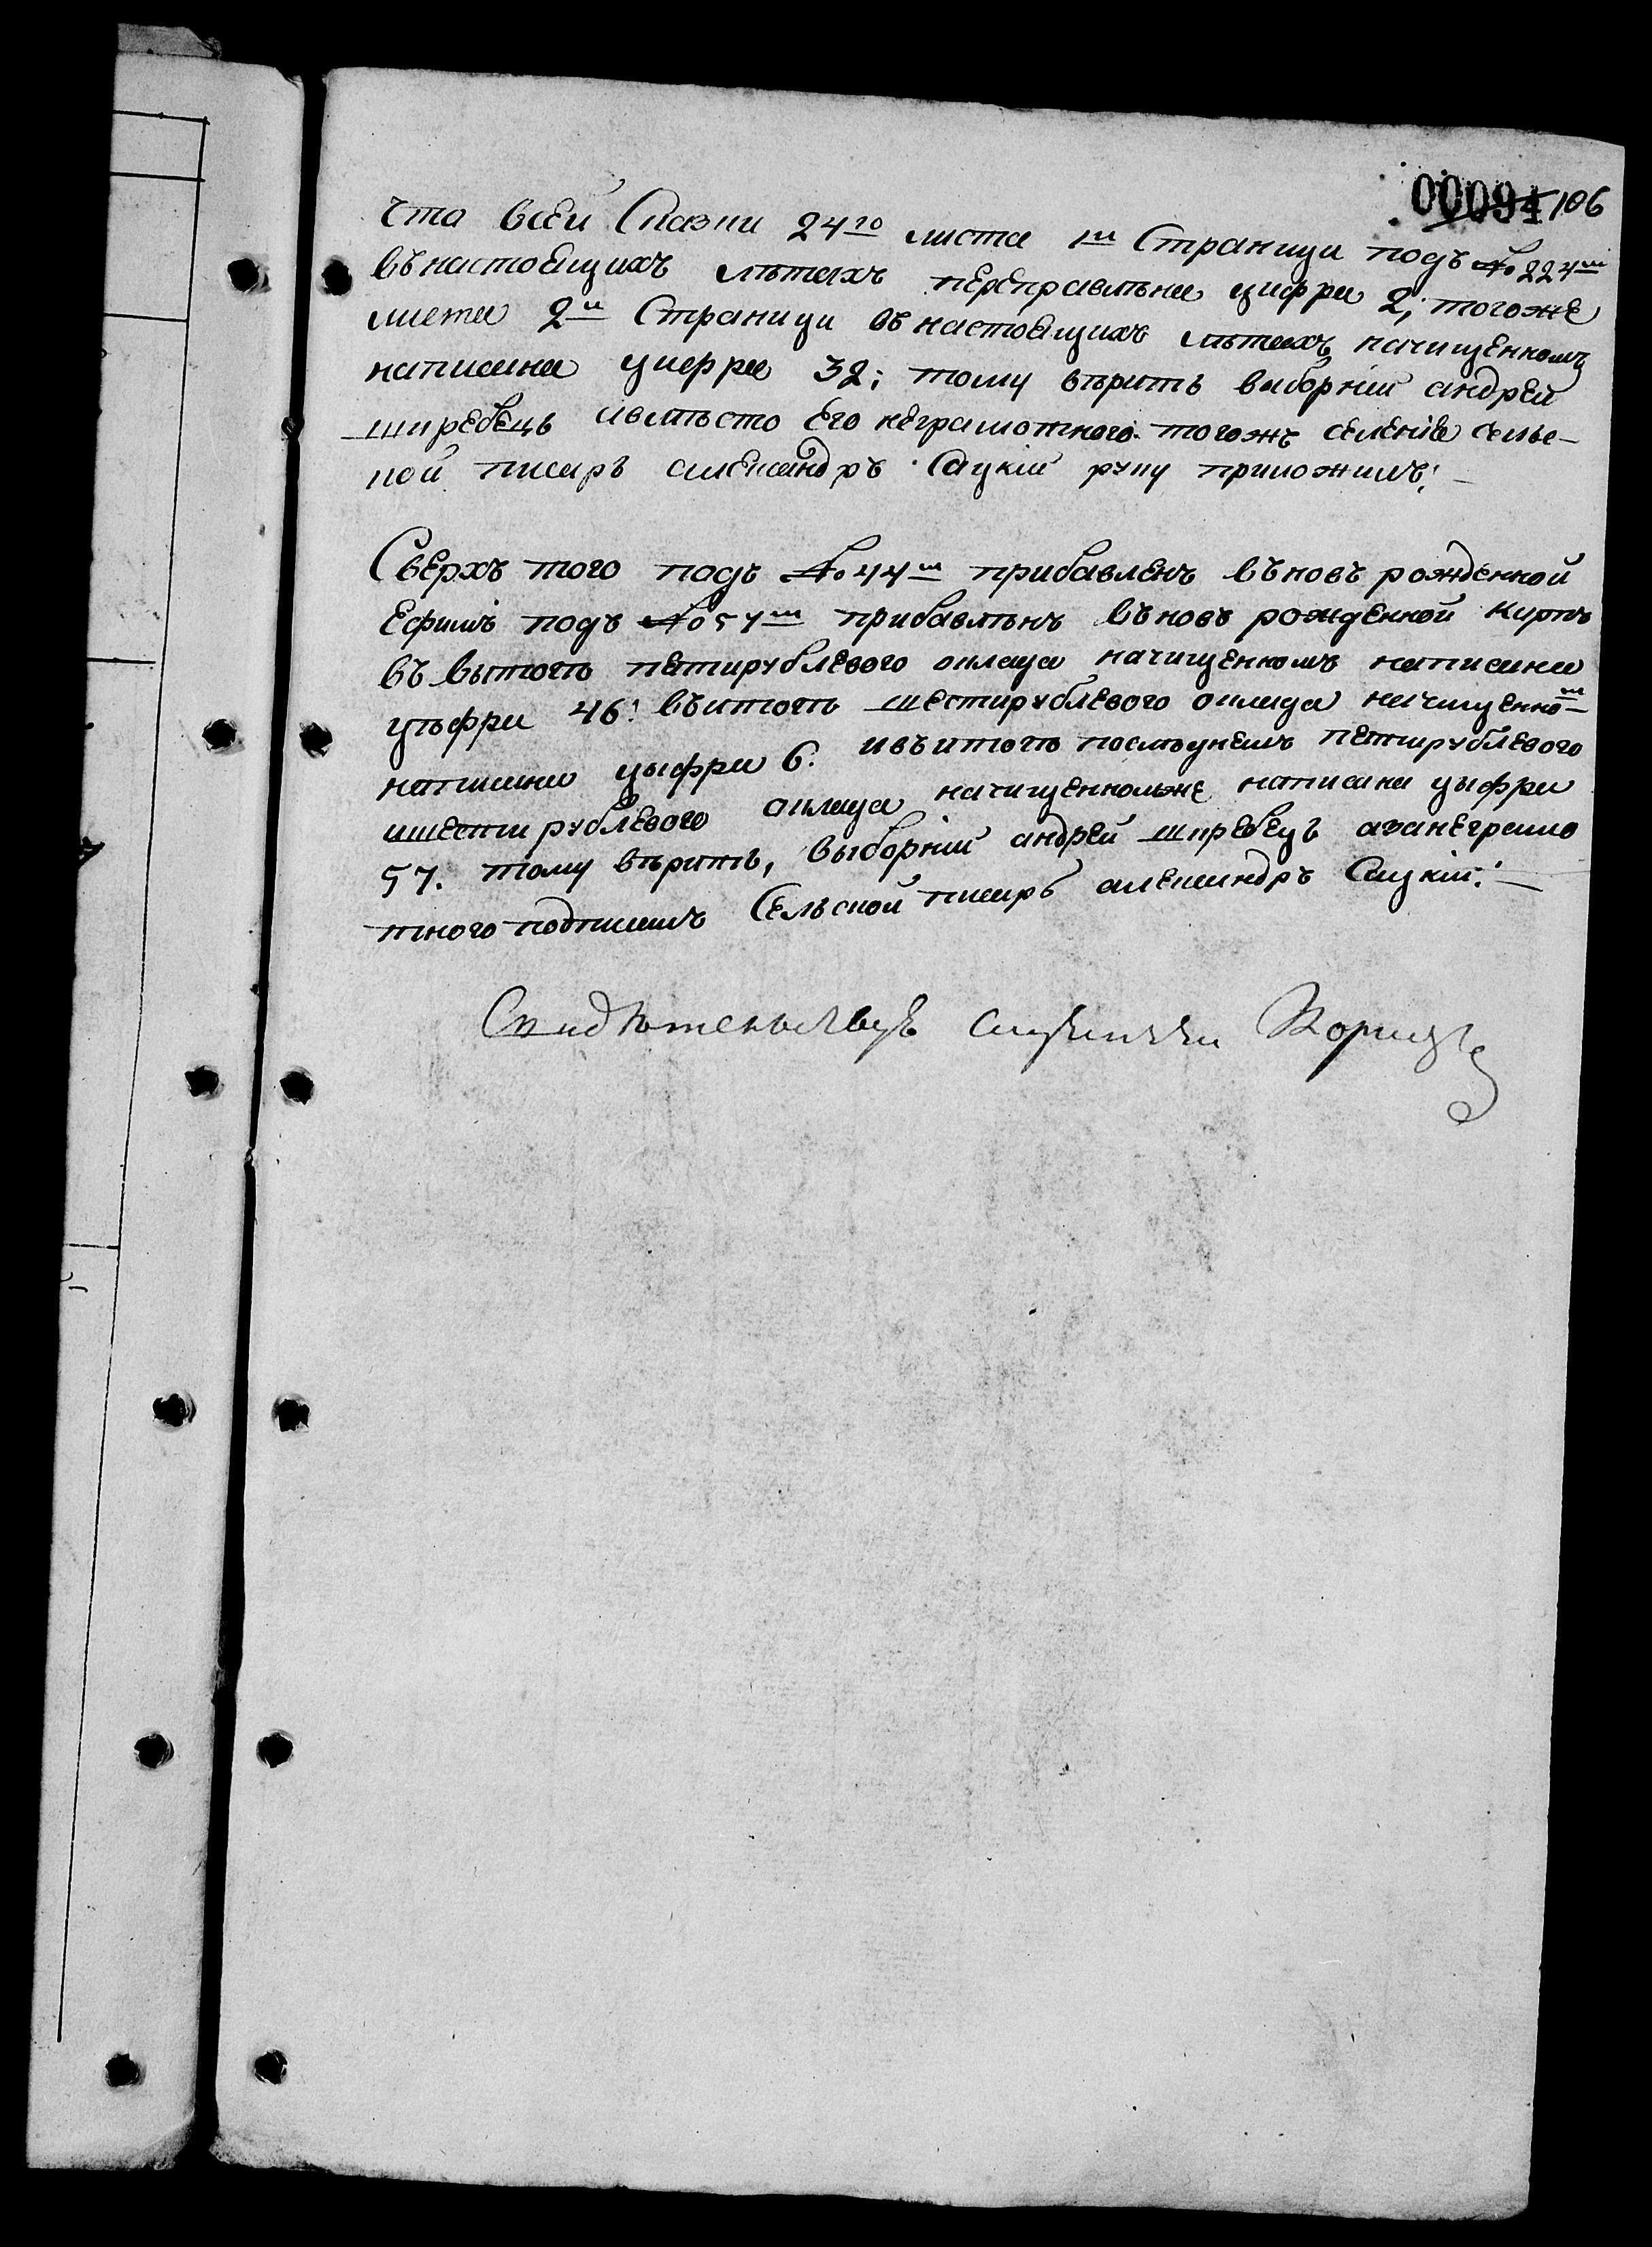 00094 106
Что всей Сказки 24го листа 1й Страници подъ № 224м
въ настоящихъ лѣтахъ переправлѣна цифра 2; тогоже
листа 2й Страници въ настоящихъ лѣтахъ начищенномъ
написана цифра 32; тому вѣрить выборній андрей
ширебець ивмѣсто его неграмотного тогожъ селенія сельс-
кой писарь александръ Сацкій руку приложилъ:
Сверхъ того подъ № 44м прибавленъ въновъ рожденной
Ефимъ подъ № 54м прибавлѣнъ въновъ рожденной
въ вытогѣ петирублевого оклада начищенномъ написана
цѣфра 46: въитогѣ шестирублевого оклада начищенном
написана цыфра 6: ивъитогѣ послѣднемъ петирублевого
ишестирублевого оклада начищенномже написана цыфра
57. тому вѣрить, выборній андрей ширебецъ азанеграмо
тного подписалъ Сельской писарь александръ Сацкій: